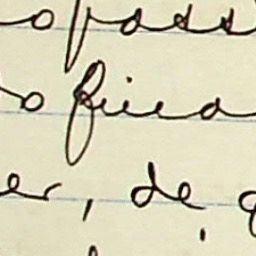 o pass
o fica
er, de q